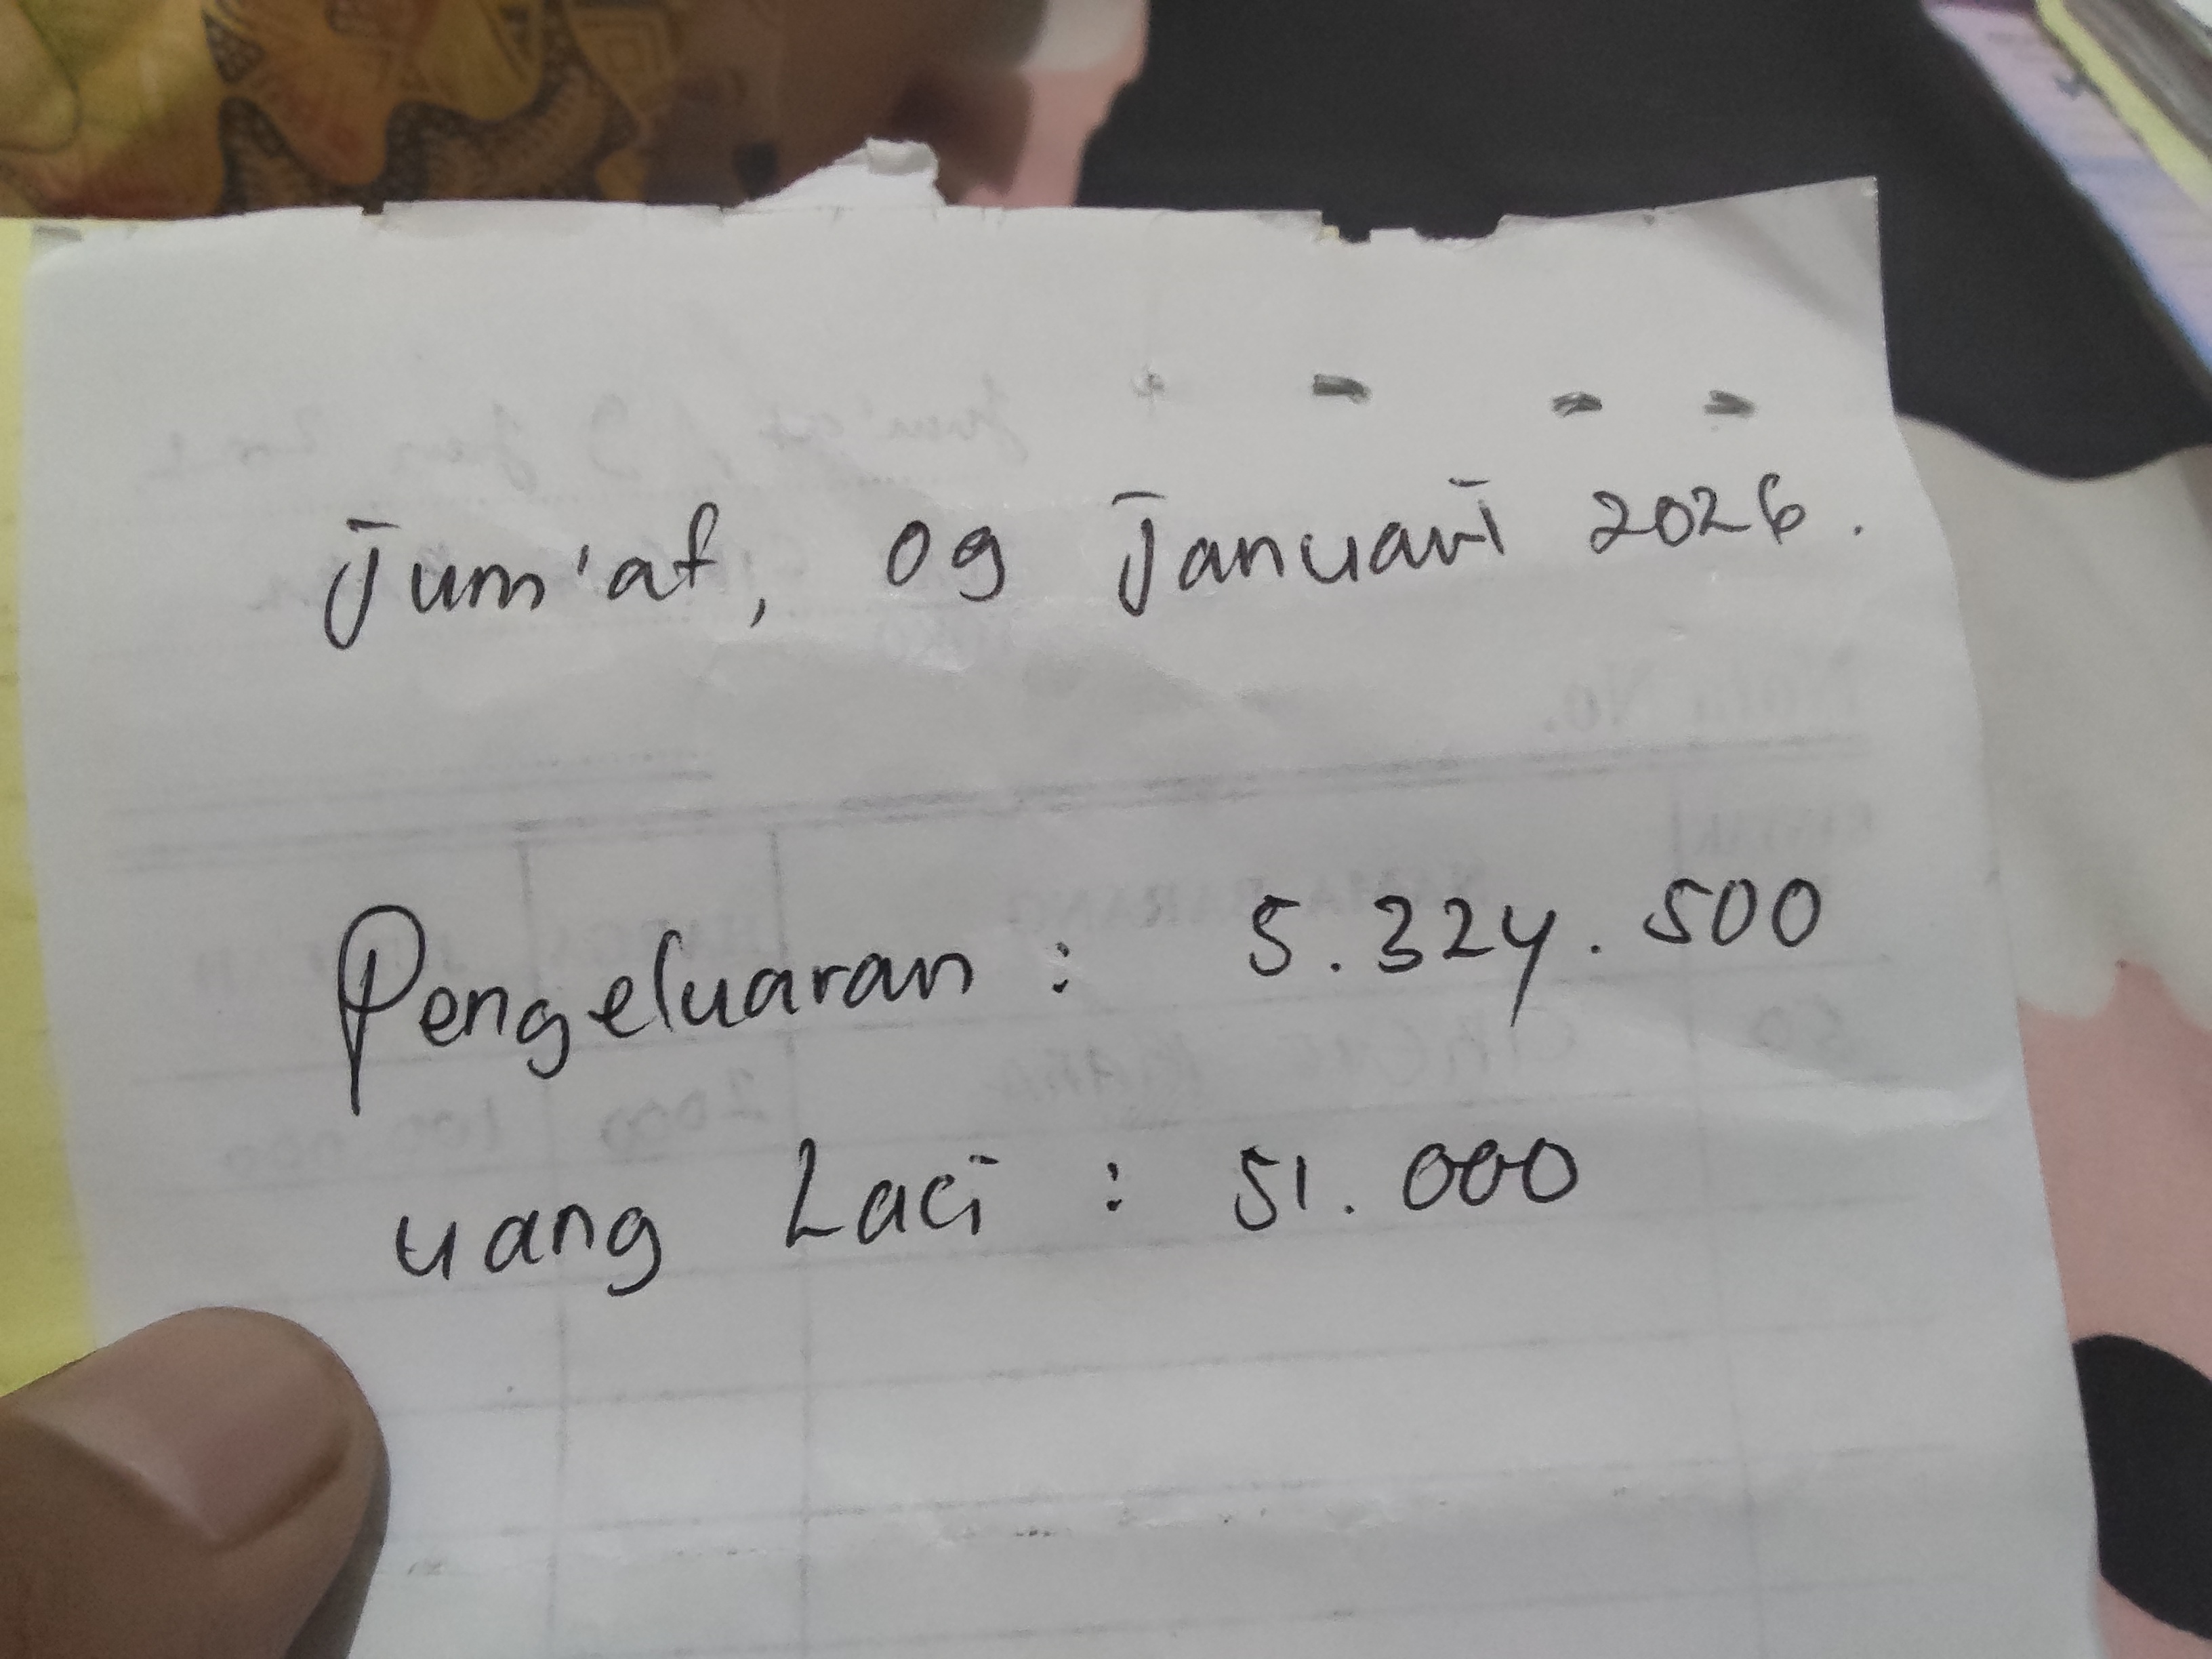 Jum'at, 09 Januari 2026.
Pengeluaran : 5.324.500
uang Laci : 51.000